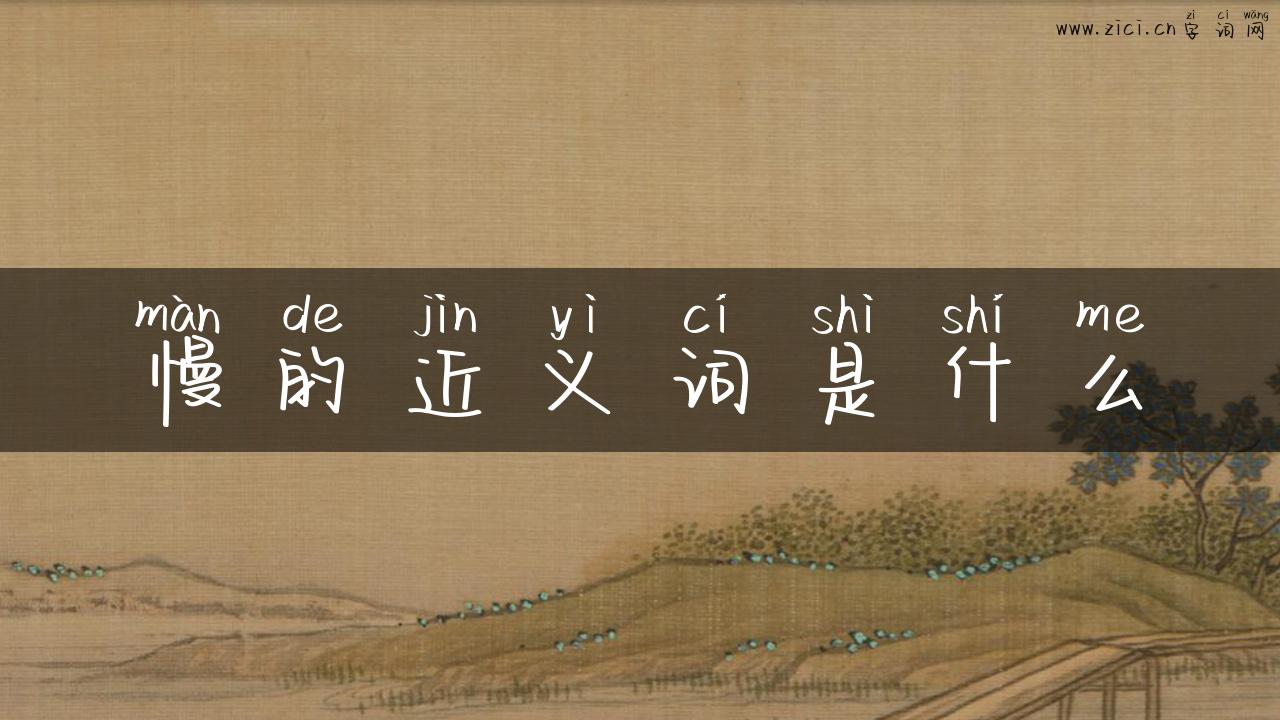 zì cí wǎng
www.zici.cn字词网
màn de jìn yì cí shì shí me
慢的近义词是什么